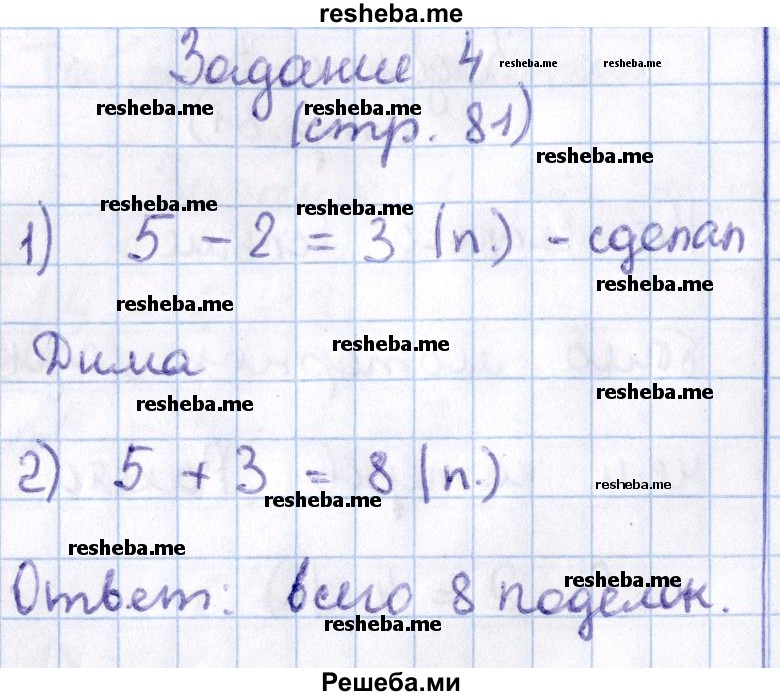 resheba.me
Задание 4 resheba.me resheba.me
resheba.me resheba.me
(стр. 81)
resheba.me
resheba.me resheba.me
1) 5 - 2 = 3 (п.) - сделал
resheba.me
resheba.me
resheba.me
Дима
resheba.me
resheba.me
2) 5 + 3 = 8 (п.)
resheba.me
resheba.me
resheba.me
resheba.me
Ответ: всего 8 поделок.
resheba.me
Решеба.ми